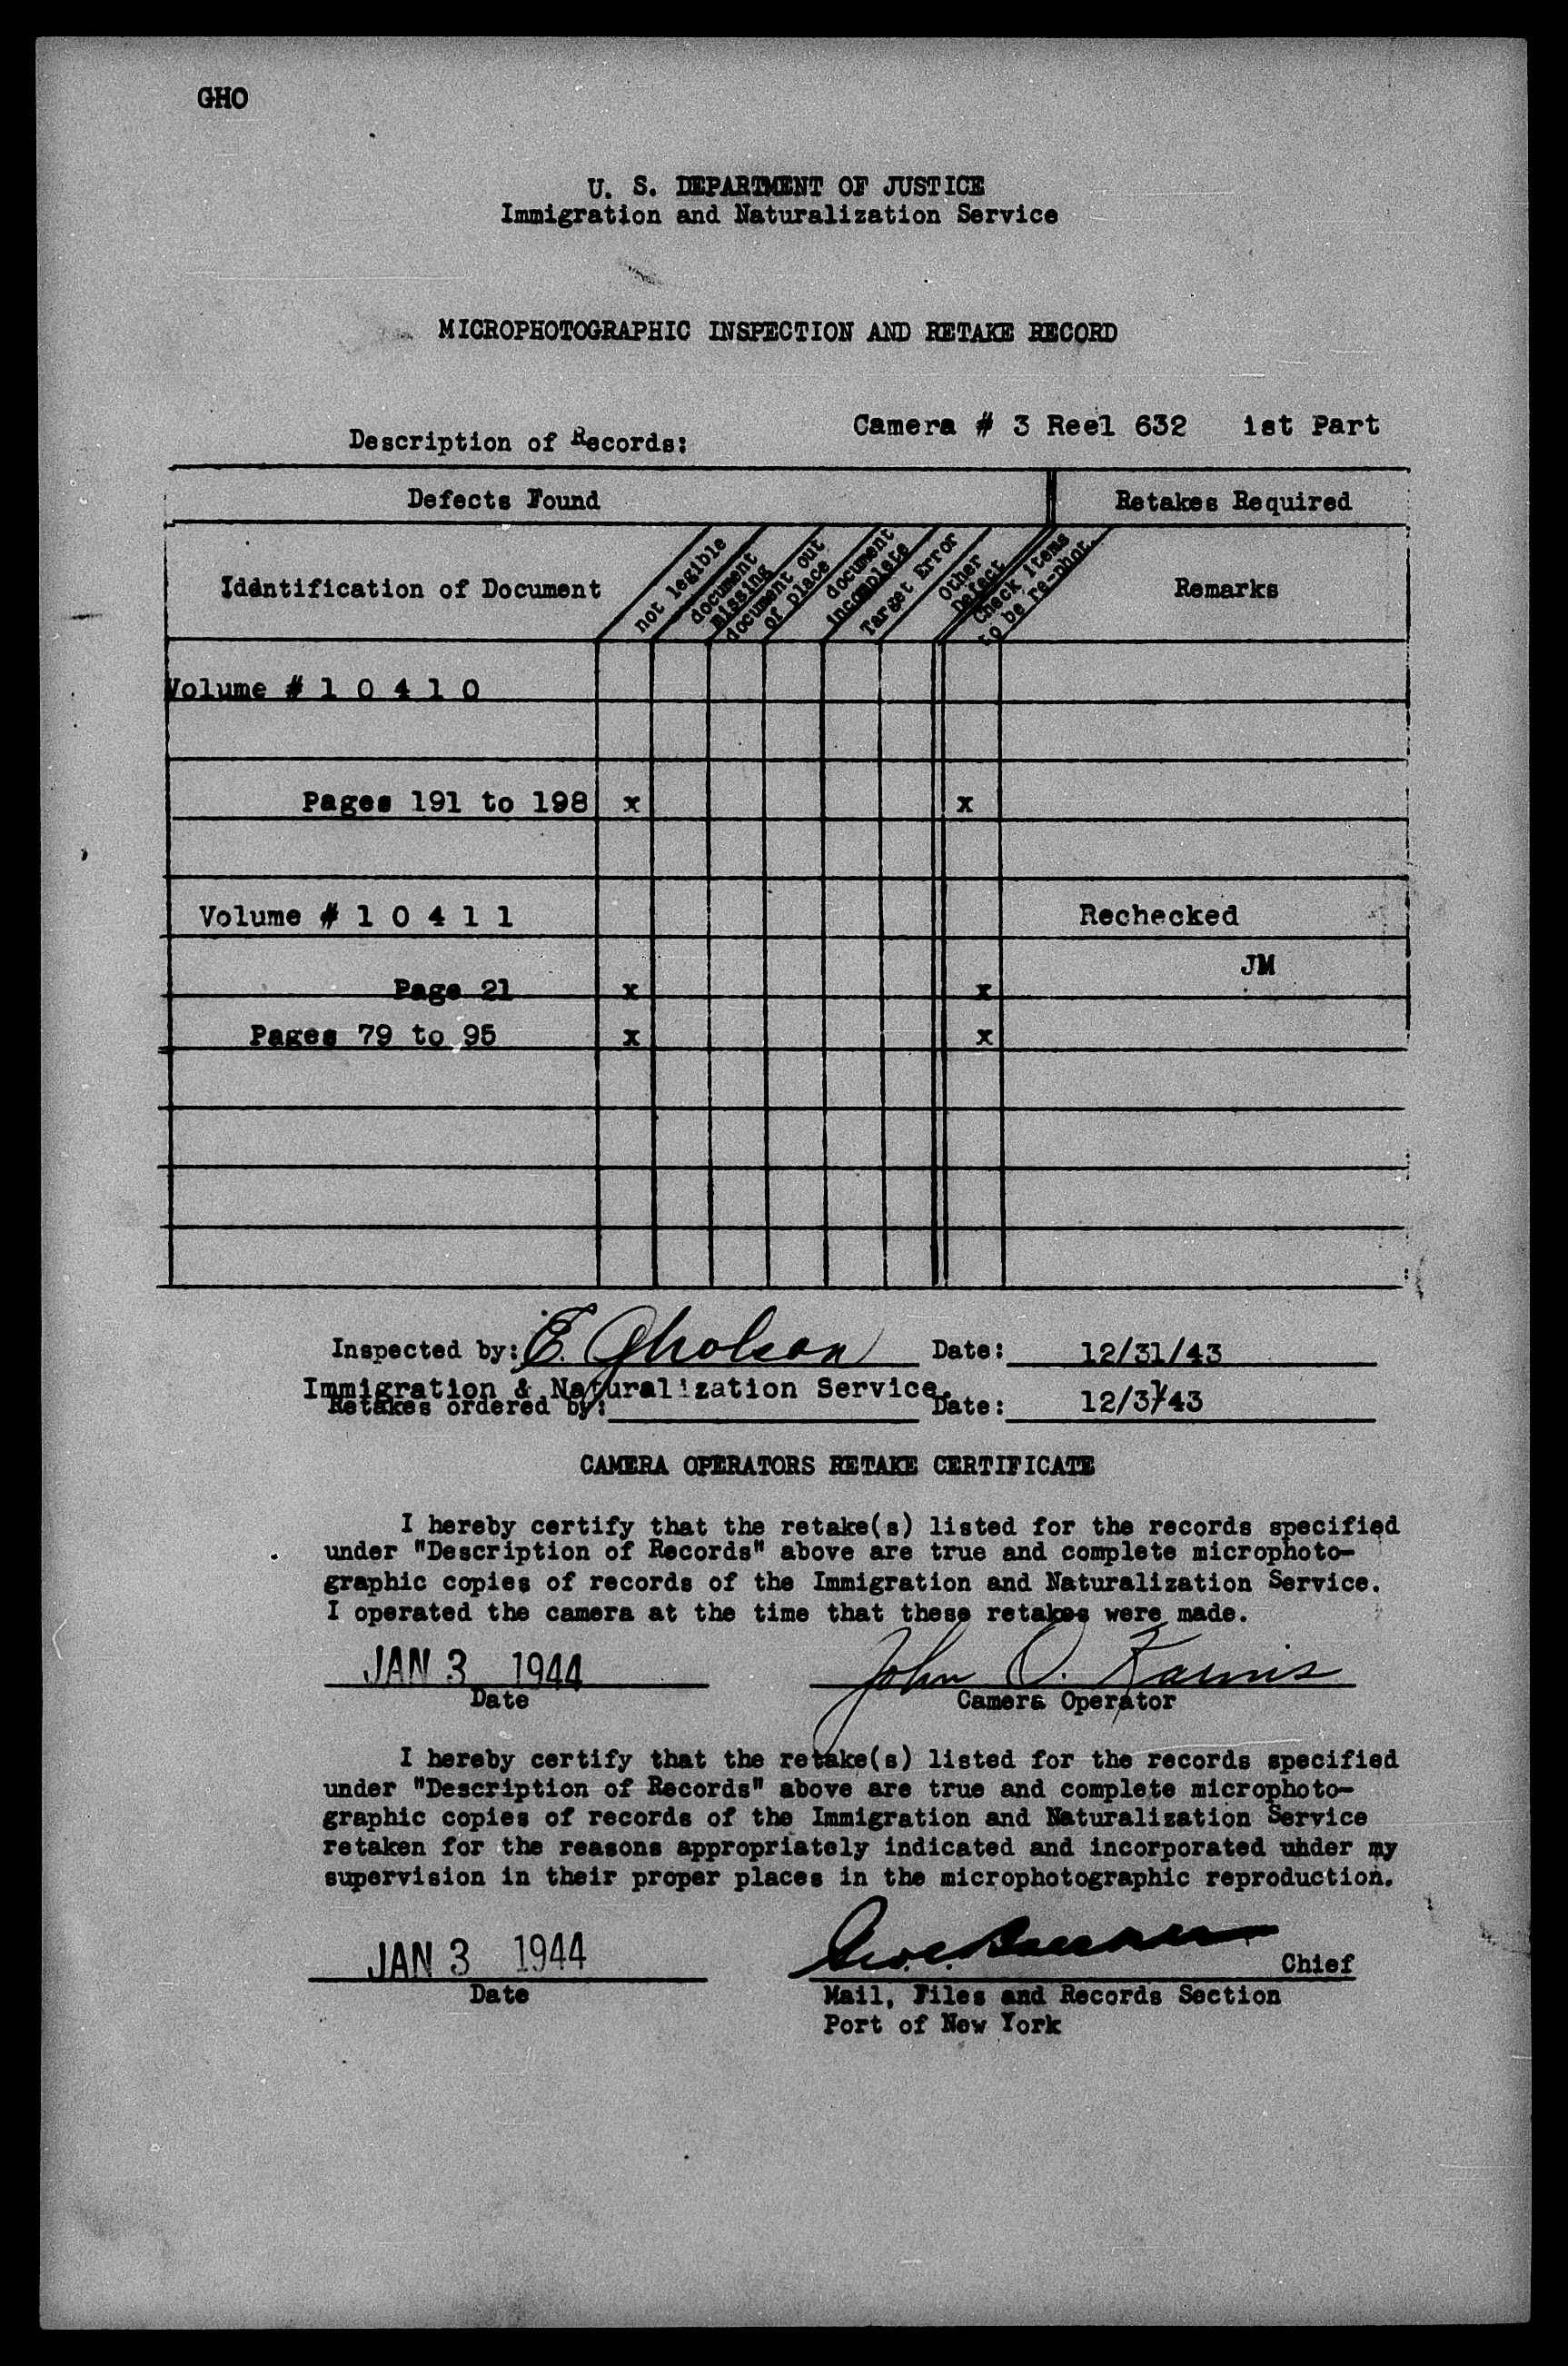 GHO
U. S. DEPARTMENT OF JUSTICE
Immigration and Naturalization Service
MICROPHOTOGRAPHIC INSPECTION AND RETAKE RECORD
Camera # 3 Reel 632 1st Part
Description of Records:
Defects Found Retakes Required
Identification of Document
not legible
document missing
document out of place
document incomplete
Target Error
Other Defect
Check items to be re-phot.
Remarks
Volume # 1 0 4 1 0
Pages 191 to 198 x x
Volume # 1 0 4 1 1 Rechecked
JM
Page 21 x x
Pages 79 to 95 x x
Inspected by: E. Gholson Date: 12/31/43
Immigration & Naturalization Service.
Retakes ordered by: Date: 12/31/43
CAMERA OPERATORS RETAKE CERTIFICATE
I hereby certify that the retake(s) listed for the records specified
under "Description of Records" above are true and complete microphoto-
graphic copies of records of the Immigration and Naturalization Service.
I operated the camera at the time that these retakes were made.
JAN 3 1944 John O.
Date Camera Operator
I hereby certify that the retake(s) listed for the records specified
under "Description of Records" above are true and complete microphoto-
graphic copies of records of the Immigration and Naturalization Service
retaken for the reasons appropriately indicated and incorporated under my
supervision in their proper places in the microphotographic reproduction.
JAN 3 1944 Chief
Date Mail, Files and Records Section
Port of New York